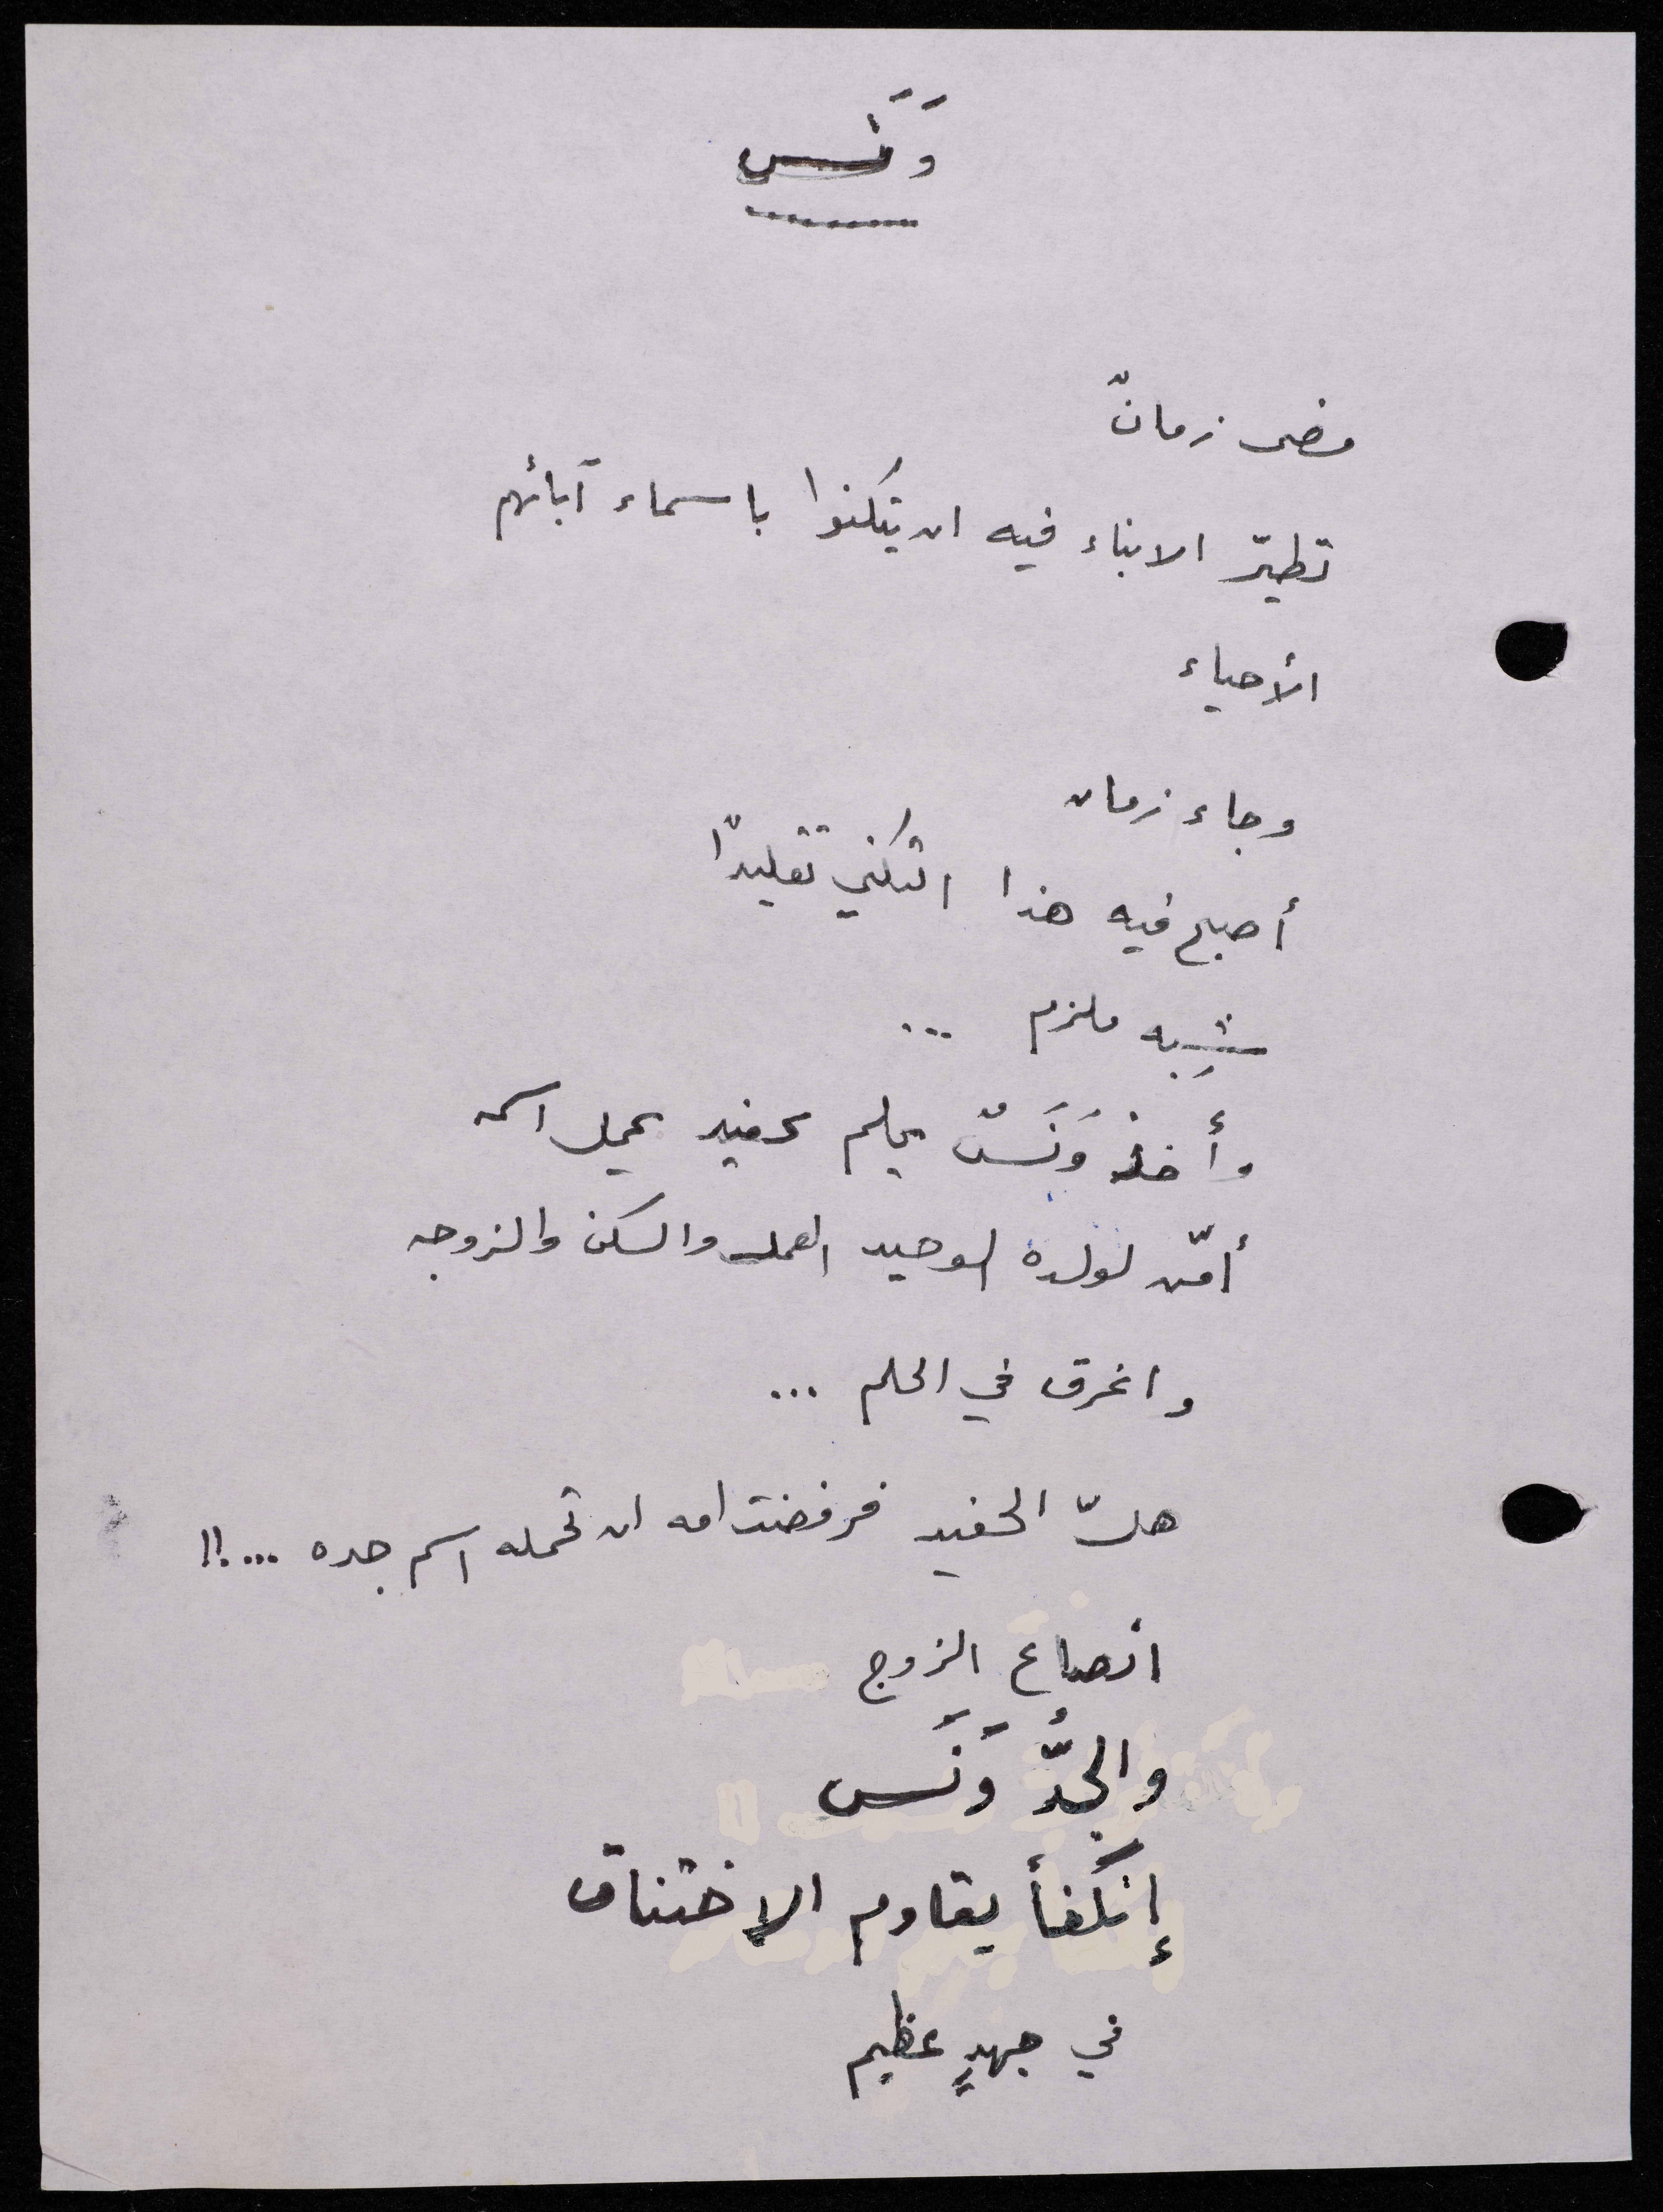 وَنَس
مضى زمانٌ
تطيّر الابناء فيه ان يتكنوا باسماء آبائهم
الأحياء
وجاء زمان
أصبح فيه هذا التكني تقليدًا
شِبه ملزم ...
وأخذ وَنَسٌ يحلم بحفيد يحمل اسمه
أمّن لولده الوحيد العمل والسكن والزوجه
واغرق في الحلم ...
هلّ الحفيد فرفضت امه ان تحمله اسم جده ...!!
انصاع الزوج
والجدُّ وَنَس
إنكَفأ يقاوم الإختناق
في جهدٍ عظيم